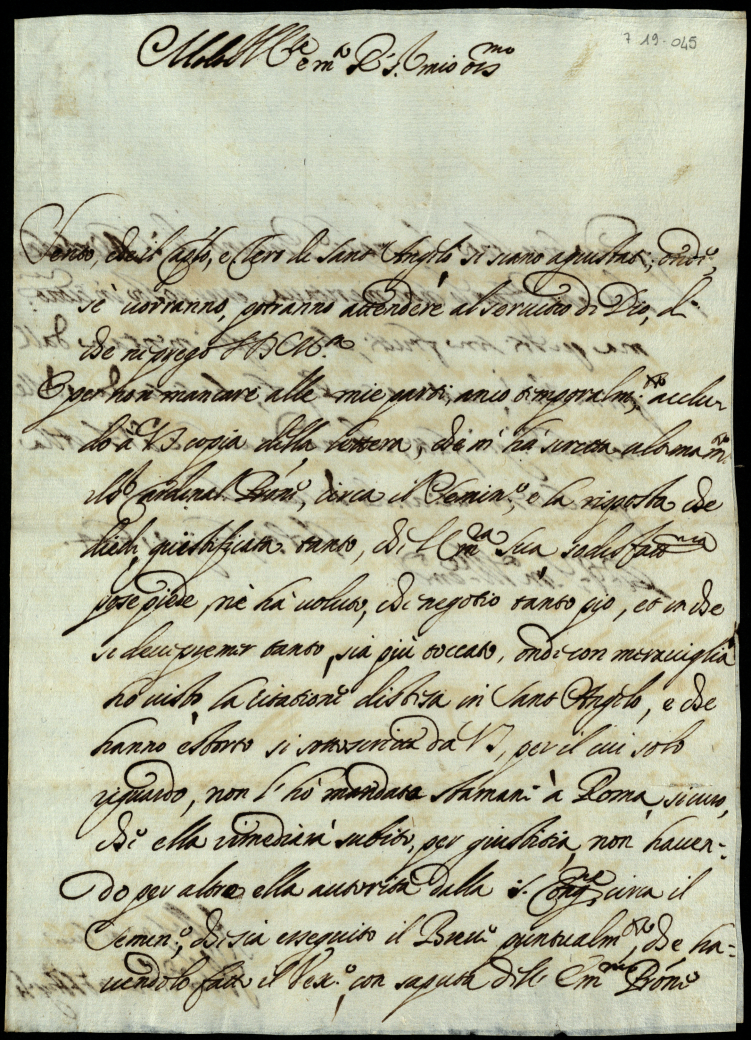 7 19-045
Molto Ill.re e m.to R. S. mio oss.mo
Sento, che il Cap.lo, e Clero di Sant' Angelo si siano aggiustati, onde,
se vorranno, potranno attendere al servitio di Dio, il
che ne prego S D M.
E per non mancare alle mie parti, anco temporalm.te acclu-
do à VS copia della lettera, che m' hà scritta ultimam.te
il S.r Cardinal, circa il Semin.o, e la risposta che
diedi, giustificata tanto, che l' Em.za Sua sodisfatt.ma
pose piede, nè hà voluto, che negotio tanto pio, et in che
si deve premer tanto, sia più toccato, onde con meraviglia
hò visto la citatione distesa in Sant Angelo, e che
hanno estorto si sottoscriva da VS, per il cui solo
riguardo, non l' hò mandata stamani à Roma, sicuro,
che ella rimedierà subito, per giustitia, non haven-
do per altro ella autorità dalla S. Cong.ne circa il
Semin.o, che sia esseguito il Breve puntualm.te, che ha-
vendolo fatto il Vesc.o, con saputa dell' Em.mo